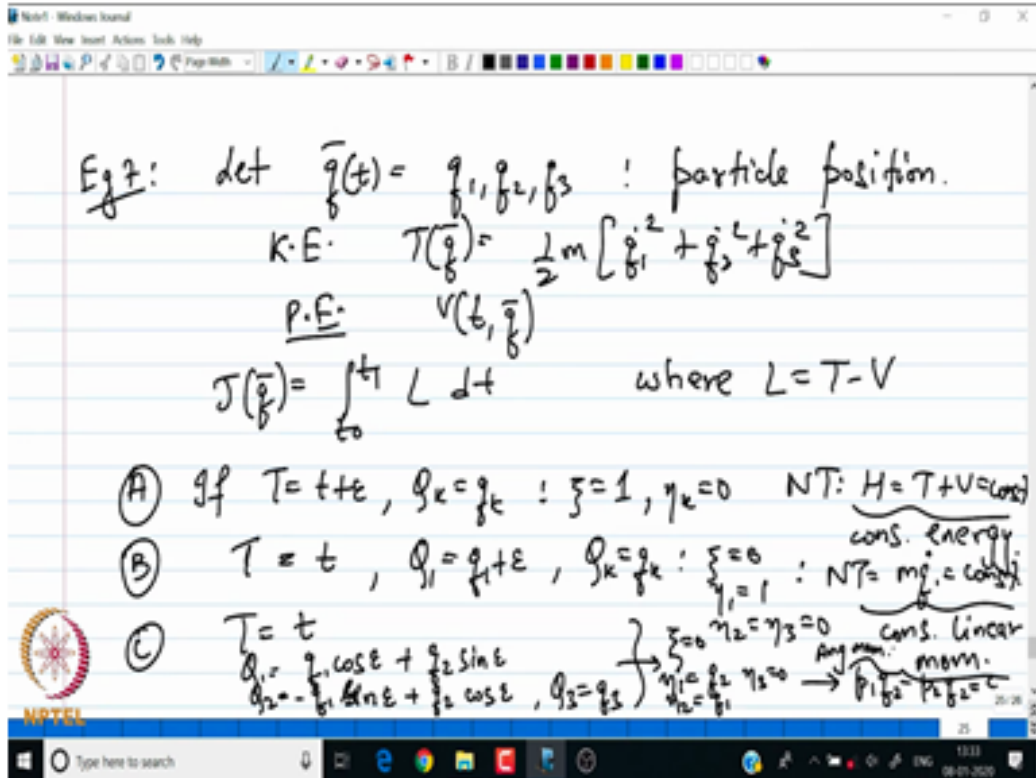 Note1 - Windows Journal
File Edit View Insert Actions Tools Help
Page Width
Eg 7: Let q̄(t) = q₁, q₂, q₃ : particle position.
K.E. T(q̄) = 1/2 m [q̇₁² + q̇₂² + q̇₃²]
P.E. V(t, q̄)
J(q̄) = ∫_{t₀}^{t₁} L dt where L = T - V
(A) If T = t+ε, Qₖ = qₖ : ξ = 1, ηₖ = 0 NT: H = T + V = const
cons. energy
(B) T = t, Q₁ = q₁ + ε, Qₖ = qₖ : ξ = 0 : NT = mq̇₁ = const.
η₁ = 1
η₂ = η₃ = 0 cons. linear mom.
(C) T = t
Q₁ = q₁ cos ε + q₂ sin ε → ξ = 0 Ang mom.
Q₂ = - q₁ sin ε + q₂ cos ε, Q₃ = q₃ η₁ = q₂ η₃ = 0 → p₁q₂ = p₂q₂ = c
η₂ = q₁
NPTEL
25/26
25
Type here to search
ENG
13:33
08-01-2020